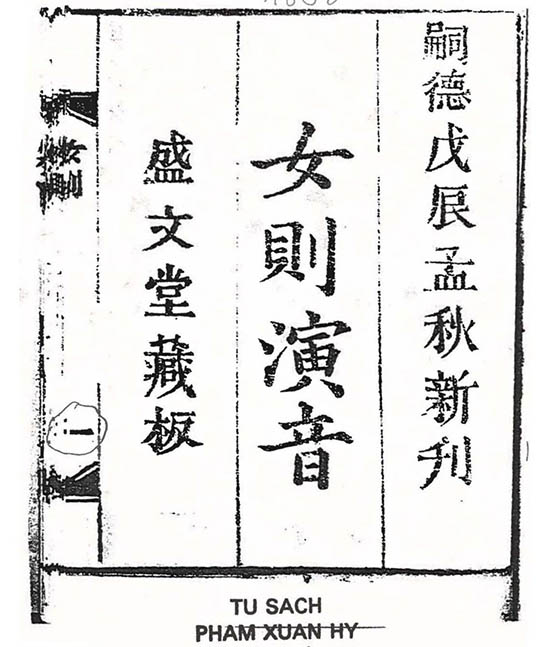 嗣德戊辰孟秋新刋
女則演音
盛文堂藏板
TU SACH
PHAM XUAN HY